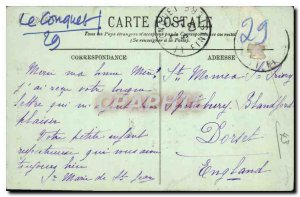 Le Conquet
29
CARTE POSTALE
29
Tous les Pays étrangers n'acceptent pas la Correspondance au recto
(Se renseigner à la Poste)
CORRESPONDANCE
ADRESSE
Merci ma bonne Mère
j'ai reçu votre longue
lettre qui m'a fait
plaisir
Votre petite enfant
respectueuse qui vous aime
toujours bien
St Marie de St Jean
St Monica's Priory
Spetisbury Blandford
Dorset
England